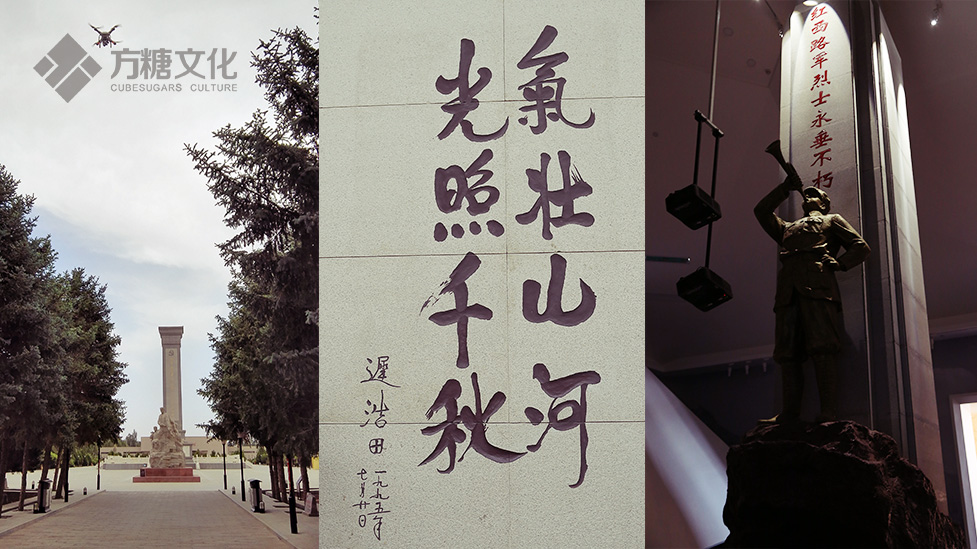 方糖文化
CUBESUGARS CULTURE
氣壯山河
光照千秋
遲浩田
一九九五年
七月廿日
红西路军烈士永垂不朽